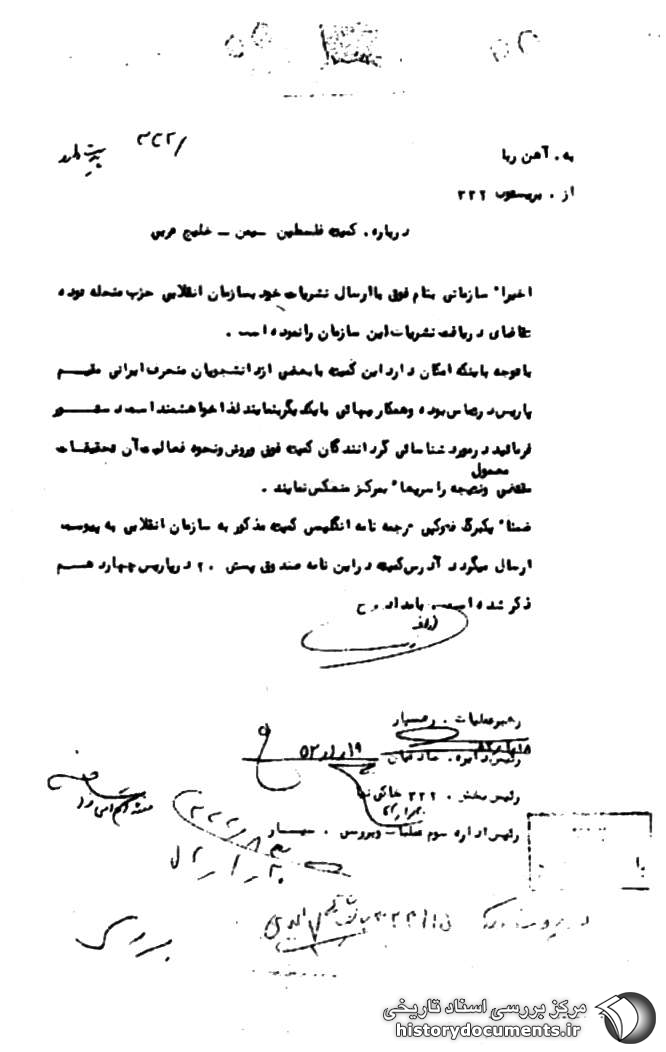 به . آهن ربا
از . پریستوب ۳۳۲
درباره . کمیته فلسطین – یمن – خلیج عربی
اخیرا" سازمانی بنام فوق با ارسال نشریات خود بسازمان انقلابی حزب منحله توده
تقاضای دریافت نشریات این سازمان را نموده است .
با توجه باینکه امکان دارد این کمیته با بعضی از دانشجویان منحرف ایرانی مقیم
پاریس در تماس بوده و همکاریهائی با یکدیگر بنمایند لذا خواهشمند است دستور
فرمائید در مورد شناسائی گردانندگان کمیته فوق و روش و نحوه فعالیت آن تحقیقات
معمول
مقتضی و نتیجه را سریعا" بمرکز منعکس نمایند .
ضمنا" یکبرگ فتوکپی ترجمه نامه انگلیسی کمیته مذکور به سازمان انقلابی به پیوست
ارسال میگردد آدرس کمیته در این نامه صندوق پستی ۲۰ در پاریس چهاردهم
ذکر شده است . بامداد . ح
رهبر عملیات .
رئیس دایره .
۵۲/۱/۱۹
رئیس بخش . ۳۳۲
رئیس اداره سوم عملیات
۳۳۲
بررسی
مرکز بررسی اسناد تاریخی
historydocuments.ir